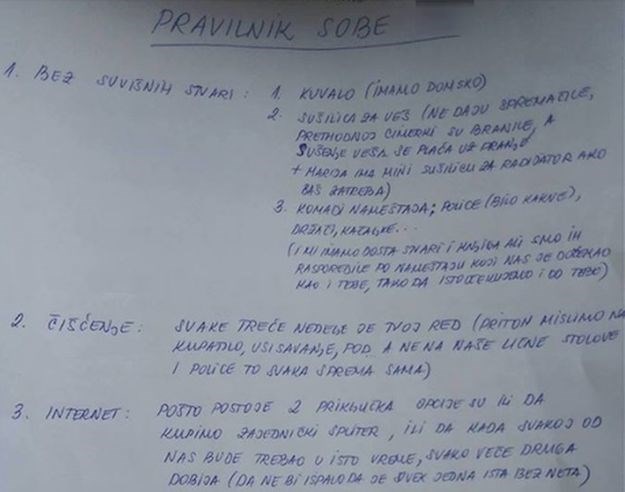 PRAVILNIK SOBE
1. BEZ SUVIŠNIH STVARI: 1. KUVALO (IMAMO DOMSKO)
2. SUŠILICA ZA VEŠ (NE DAJU SPREMAČICE,
PRETHODNOJ CIMERKI SU BRANILE, A
SUŠENJE VEŠA SE PLAĆA UZ PRANJE
+ MARIJA IMA MINI SUŠILICU ZA RADIJATOR AKO
BAŠ ZATREBA)
3. KOMADI NAMEŠTAJA; POLICE (BILO KAKVE),
DRŽAČI, KAZALJKE...
(I MI IMAMO DOSTA STVARI I KNJIGA ALI SMO IH
RASPOREDILE PO NAMEŠTAJU KOJI NAS JE DOČEKAO
KAO I TEBE, TAKO DA ISTO OČEKUJEMO I OD TEBE)
2. ČIŠĆENJE: SVAKE TREĆE NEDELJE JE TVOJ RED (PRITOM MISLIMO NA
KUPATILO, USISAVANJE, POD A NE NA NAŠE LIČNE STOLOVE
I POLICE TO SVAKA SPREMA SAMA)
3. INTERNET: POŠTO POSTOJE 2 PRIKLJUČKA OPCIJE SU ILI DA
KUPIMO ZAJEDNIČKI SPLITER, ILI DA KADA SVAKOJ OD
NAS BUDE TREBAO U ISTO VREME, SVAKO VEČE DRUGA
DOBIJA (DA NE BI ISPALO DA JE UVEK JEDNA ISTA BEZ NETA)